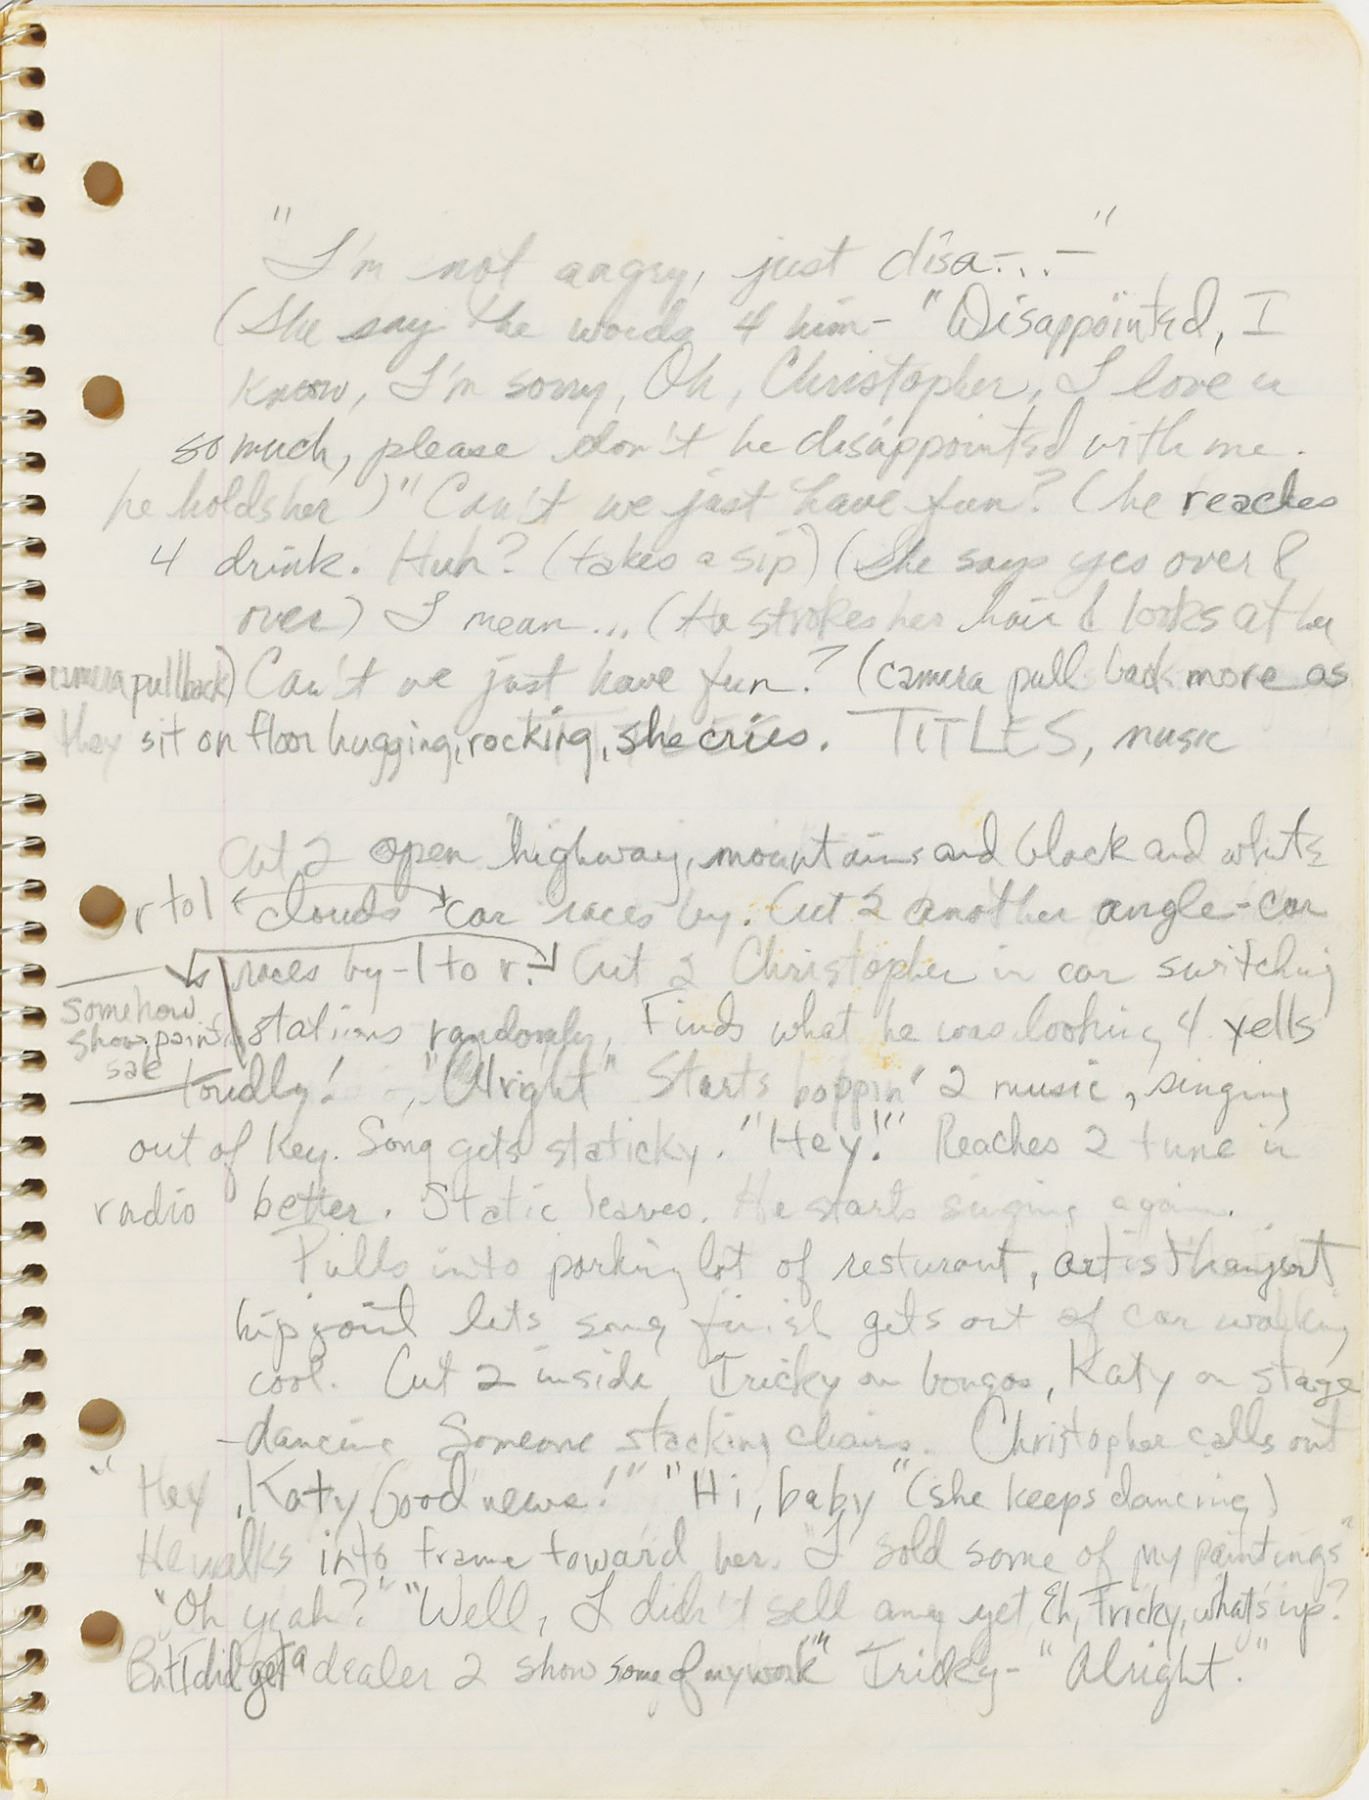 "I'm not angry, just disa-..-"
(She say the words 4 him- "Disappointed, I
know, I'm sorry, Oh, Christopher, I love u
so much, please don't be disappointed with me.
he holds her)" Can't we just have fun? (he reaches
4 drink. Huh? (takes a sip) (She says yes over &
over) I mean... (He strokes her hair & looks at her
camera pull back) Can't we just have fun? (camera pull back more as
they sit on floor hugging, rocking, she cries. TITLES, music
Cut 2 open highway, mountains and black and white
r to l clouds car races by. Cut 2 another angle-car
races by-l to r. Cut 2 Christopher in car switching
stations randomly, Finds what he was looking 4 yells
somehow
show paint
sale
loudly! "Alright" Starts boppin' 2 music, singing
out of key. Song gets staticky. "Hey!" Reaches 2 tune in
radio better. Static leaves. He starts singing again.
Pulls into parking lot of resturant, artist hangout
hip joint lets song finish gets out of car walking
cool. Cut 2 inside Tricky on bongos, Katy on stage
-dancing Someone stacking chairs. Christopher calls out
"Hey, Katy Good news!" "Hi, baby" (she keeps dancing)
He walks into frame toward her. "I sold some of my paintings"
"Oh yeah?" "Well, I didn't sell any yet Eh, Tricky, what's up?
But I did get a dealer 2 show some of my work" Tricky- "Alright."